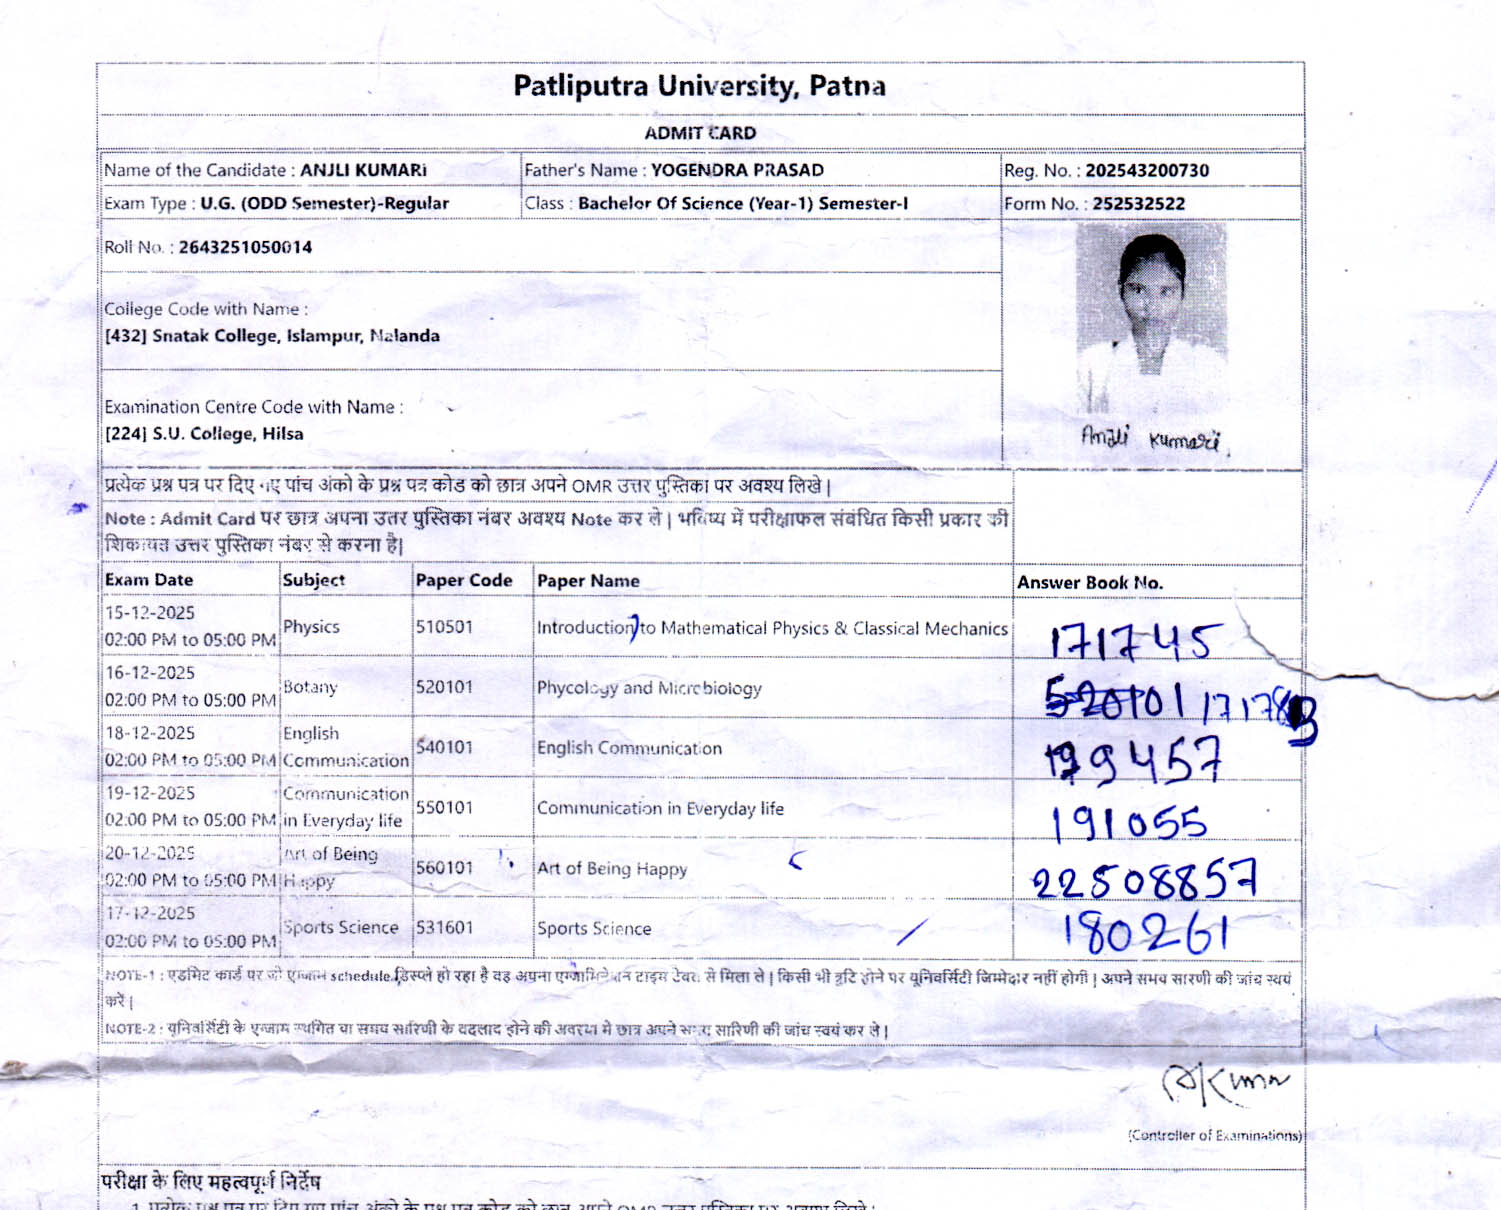 Patliputra University, Patna
ADMIT CARD
Name of the Candidate : ANJLI KUMARI
Father's Name : YOGENDRA PRASAD
Reg. No. : 202543200730
Exam Type : U.G. (ODD Semester)-Regular
Class : Bachelor Of Science (Year-1) Semester-I
Form No. : 252532522
Roll No. : 2643251050014
College Code with Name :
[432] Snatak College, Islampur, Nalanda
Examination Centre Code with Name :
[224] S.U. College, Hilsa
Anjli Kumari
प्रत्येक प्रश्न पत्र पर दिए गए पांच अंको के प्रश्न पत्र कोड को छात्र अपने OMR उत्तर पुस्तिका पर अवश्य लिखे |
Note : Admit Card पर छात्र अपना उतर पुस्तिका नंबर अवश्य Note कर ले | भविष्य में परीक्षाफल संबंधित किसी प्रकार की
शिकायत उत्तर पुस्तिका नंबर से करना है|
Exam Date Subject Paper Code Paper Name Answer Book No.
15-12-2025
02:00 PM to 05:00 PM Physics 510501 Introduction to Mathematical Physics & Classical Mechanics 171745
16-12-2025
02:00 PM to 05:00 PM Botany 520101 Phycology and Microbiology 520101
18-12-2025
02:00 PM to 05:00 PM English Communication 540101 English Communication 199457
19-12-2025
02:00 PM to 05:00 PM Communication in Everyday life 550101 Communication in Everyday life 191055
20-12-2025
02:00 PM to 05:00 PM Art of Being Happy 560101 Art of Being Happy 22508857
17-12-2025
02:00 PM to 05:00 PM Sports Science 531601 Sports Science 180261
NOTE-1 : एडमिट कार्ड पर जो एग्जाम schedule डिस्प्ले हो रहा है वह अपना एग्जामिनेशन टाइम टेबल से मिला ले | किसी भी त्रुटि होने पर यूनिवर्सिटी जिम्मेदार नहीं होगी | अपने समय सारणी की जांच स्वयं
करें |
NOTE-2 : यूनिवर्सिटी के एग्जाम स्थगित या समय सारिणी के बदलाव होने की अवस्था मे छात्र अपने समय सारिणी की जांच स्वयं कर ले |
(Controller of Examinations)
परीक्षा के लिए महत्वपूर्ण निर्देष